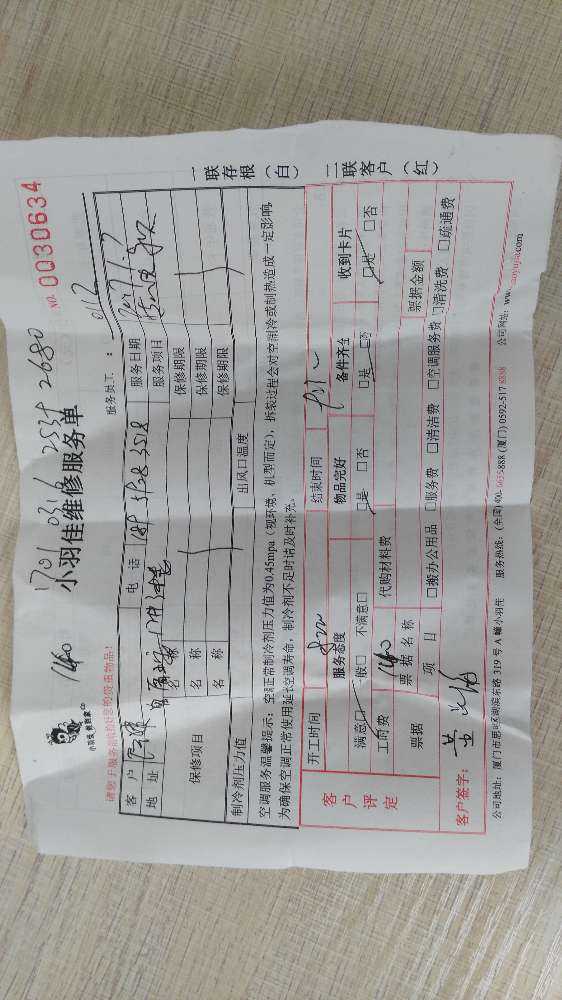 1701 0316 2534 2680
小羽佳维修服务单
NO. 0030634
小羽佳 倍腾家
请您于服务前收好您的贵重物品！
服务员工：
客户
电话
服务日期
地址
服务项目
保修项目
名称
保修期限
名称
保修期限
名称
保修期限
制冷剂压力值
出风口温度
空调服务温馨提示：空调正常制冷剂压力值为0.45mpa（视环境、机型而定），拆装过程会对空制冷或制热造成一定影响，
为确保空调正常使用延长空调寿命，制冷剂不足时请及时补充。
一联存根（白） 二联客户（红）
客户评定
开工时间
结束时间
服务态度
物品完好
备件齐全
收到卡片
满意□ 一般□ 不满意□
□是 □否
□是 □否
□是 □否
工时费
代购材料费
票据
票据名称
票据金额
项目
□搬办公用品 □服务费 □清洁费 □空调服务费 □清洗费 □疏通费
客户签字：
公司地址：厦门市思明区湖滨东路 319 号 A 幢小羽佳 服务热线：（全国）400-6655-888（厦门）0592-517 8288 公司网站：www.xiaoyujia.com